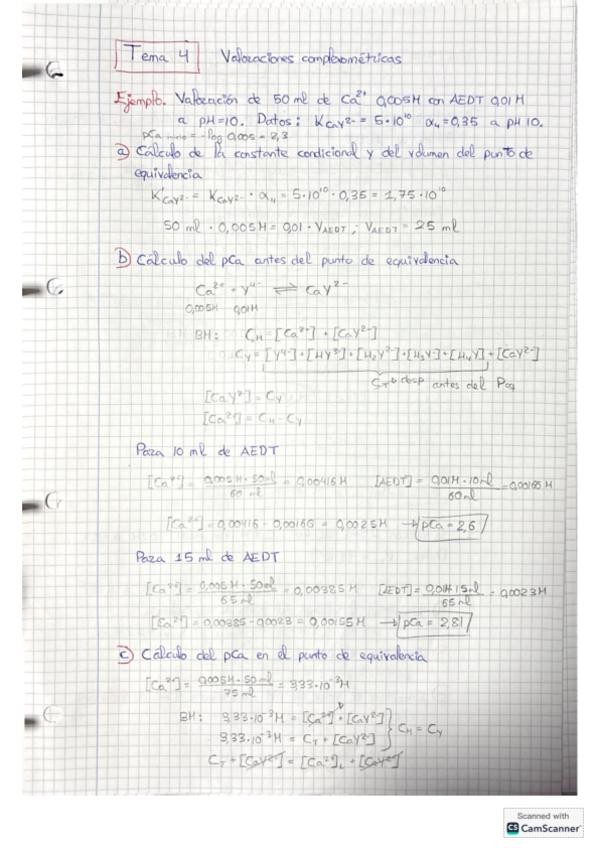 Tema 4 Valoraciones complexométricas
Ejemplo. Valoración de 50 ml de Ca²⁺ 0,005M con AEDT 0,01 M
a pH=10. Datos: K CaY²⁻ = 5·10¹⁰ α₄=0,35 a pH 10.
= -log 0,005 = 2,3
a) Cálculo de la constante condicional y del volumen del punto de
equivalencia
K'CaY²⁻ = KCaY²⁻ · α₄ = 5·10¹⁰ · 0,35 = 1,75·10¹⁰
50 ml · 0,005M = 0,01 · VAEDT ; VAEDT = 25 ml
b) Cálculo del pCa antes del punto de equivalencia
Ca²⁺ + Y⁴⁻ ⇌ CaY²⁻
0,005M 0,01M
BH: CM = [Ca²⁺] + [CaY²⁻]
CY = [Y⁴⁻] + [HY³⁻] + [H₂Y²⁻] + [H₃Y⁻] + [H₄Y] + [CaY²⁻]
antes del Peq
[CaY²⁻] = CY
[Ca²⁺] = CM - CY
Para 10 ml de AEDT
[Ca²⁺] = 0,005M · 50ml / 60 ml = 0,00416M [AEDT] = 0,01M · 10ml / 60ml = 0,00166M
[Ca²⁺] = 0,00416 - 0,00166 = 0,0025M → pCa = 2,6
Para 15 ml de AEDT
[Ca²⁺] = 0,005M · 50ml / 65ml = 0,00385M [AEDT] = 0,01M 15ml / 65ml = 0,0023M
[Ca²⁺] = 0,00385 - 0,0023 = 0,00155M → pCa = 2,81
c) Cálculo del pCa en el punto de equivalencia
[Ca²⁺] = 0,005M · 50ml / 75ml = 3,33·10⁻³M
BH: 3,33·10⁻³M = [Ca²⁺] + [CaY²⁻]
3,33·10⁻³M = CT + [CaY²⁻] } CM = CY
CT + [CaY²⁻] = [Ca²⁺]L + [CaY²⁻]
Scanned with
CS CamScanner